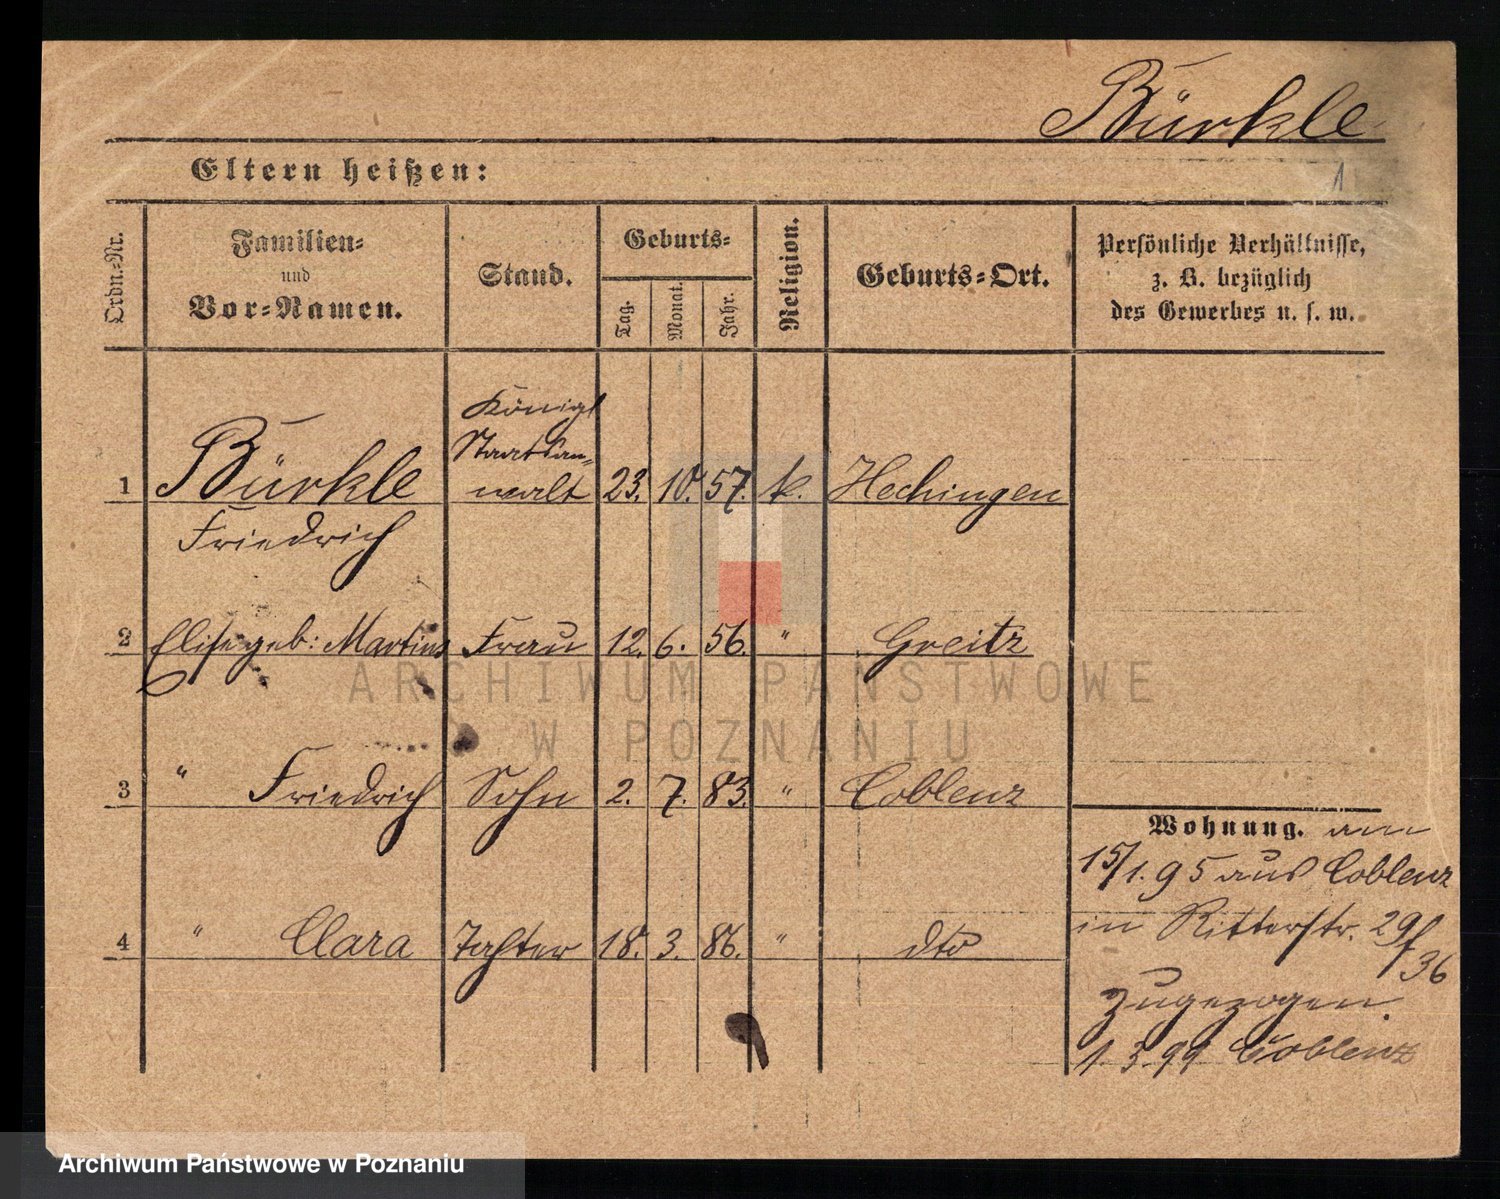 Bürkle
Eltern heißen:
1
Ordn.-Nr.
Familien-
und
Vor-Namen.
Stand.
Geburts-
Tag.
Monat.
Jahr.
Religion.
Geburts-Ort.
Persönliche Verhältnisse,
z. B. bezüglich
des Gewerbes u. s. w.
Königl
Staatsan-
1 Bürkle walt 23. 10. 57. k. Hechingen
Friedrich
2 Elise geb: Martins Frau 12. 6. 56. " Greitz
ARCHIWUM PAŃSTWOWE
W POZNANIU
3 " Friedrich Sohn 2. 7. 83. " Coblenz
Wohnung. am
15/1. 95 aus Coblenz
4 " Clara Tochter 18. 3. 86. " dto
in Ritterstr. 29/
36
zugezogen.
1. 3. 99 Coblenz
Archiwum Państwowe w Poznaniu